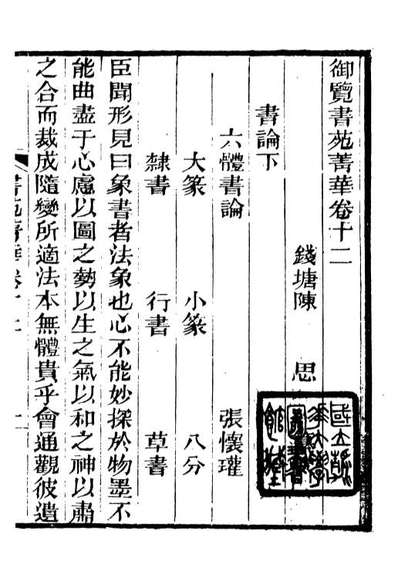 御覽書苑菁華卷十二
錢塘陳 思
書論下
六體書論 張懷瓘
大篆 小篆 八分
隸書 行書 草書
臣聞形見曰象書者法象也心不能妙探於物墨不
能曲盡于心慮以圖之勢以生之氣以和之神以肅
之合而裁成隨變所適法本無體貴乎會通觀彼遺